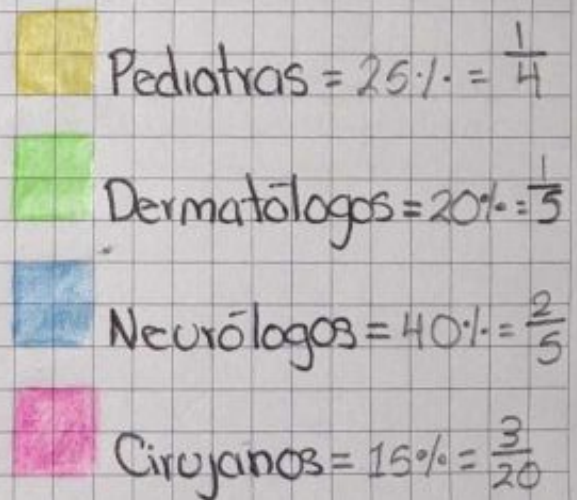 Pediatras = 25% = 1/4
Dermatólogos = 20% = 1/5
Neurólogos = 40% = 2/5
Cirujanos = 15% = 3/20